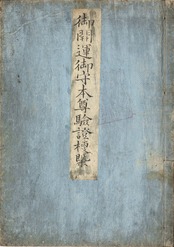 御開運御守本尊驗證校集